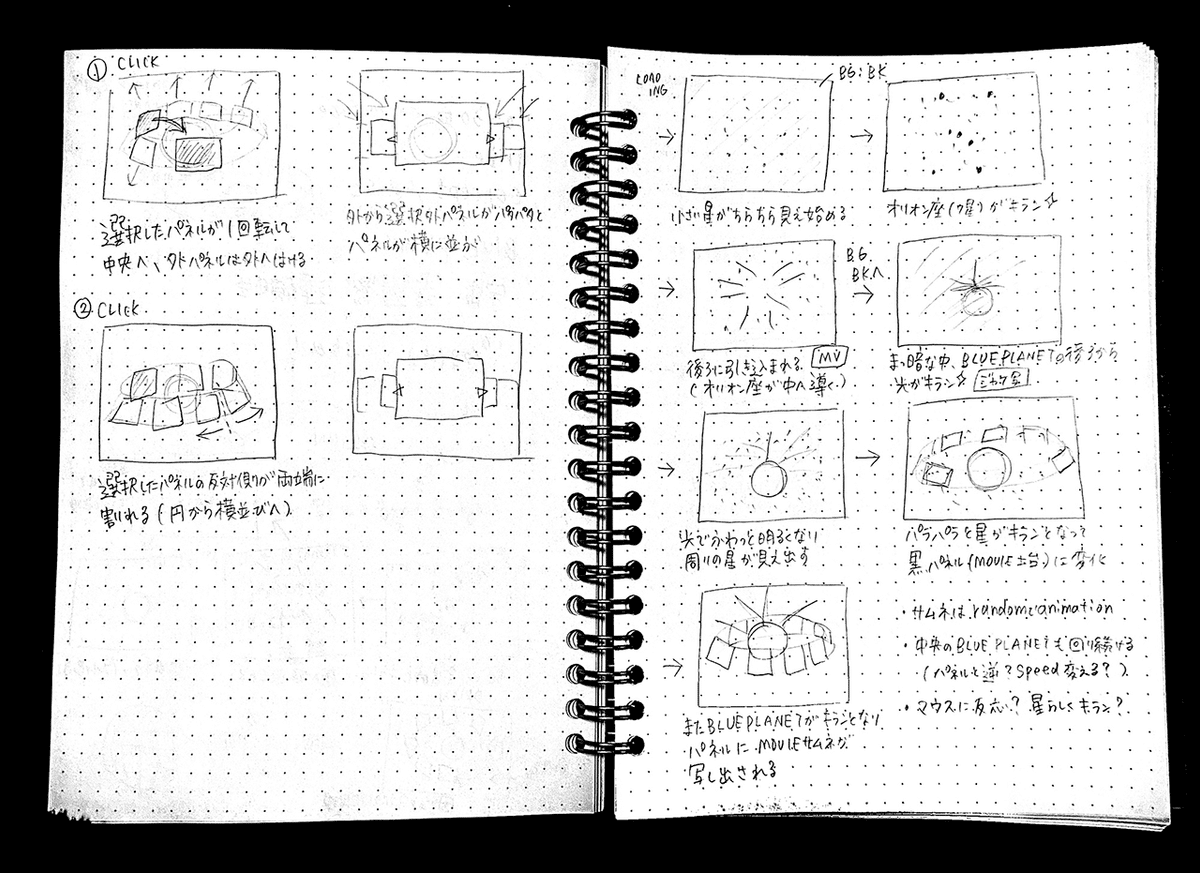 ① CLICK
選択したパネルが1回転して
中央へ、外パネルは外へはける
外から選択外パネルがパタパタと
パネルが横に並ぶ
② CLICK
選択したパネルの反対側が両端に
割れる(円から横並びへ)
LOAD
ING
BG:BK
小さい星がちらちら見え始める
オリオン座(7星)がキラン☆
後ろに引き込まれる MV
(オリオン座が中へ導く)
BG.
BKへ
まっ暗な中、BLUE PLANETの後ろから
光がキラン☆
光でふわっと明るくなり
周りの星が見え出す
パラパラと星がキランとなって
黒パネル(MOVIE土台)に変化
またBLUE PLANETがキランとなり
パネルにMOVIEサムネが
写し出される
・サムネはrandomでanimation
・中央のBLUE PLANETも回り続ける
(パネルと逆?speed変える?)
・マウスに反応?星らしくキラン?